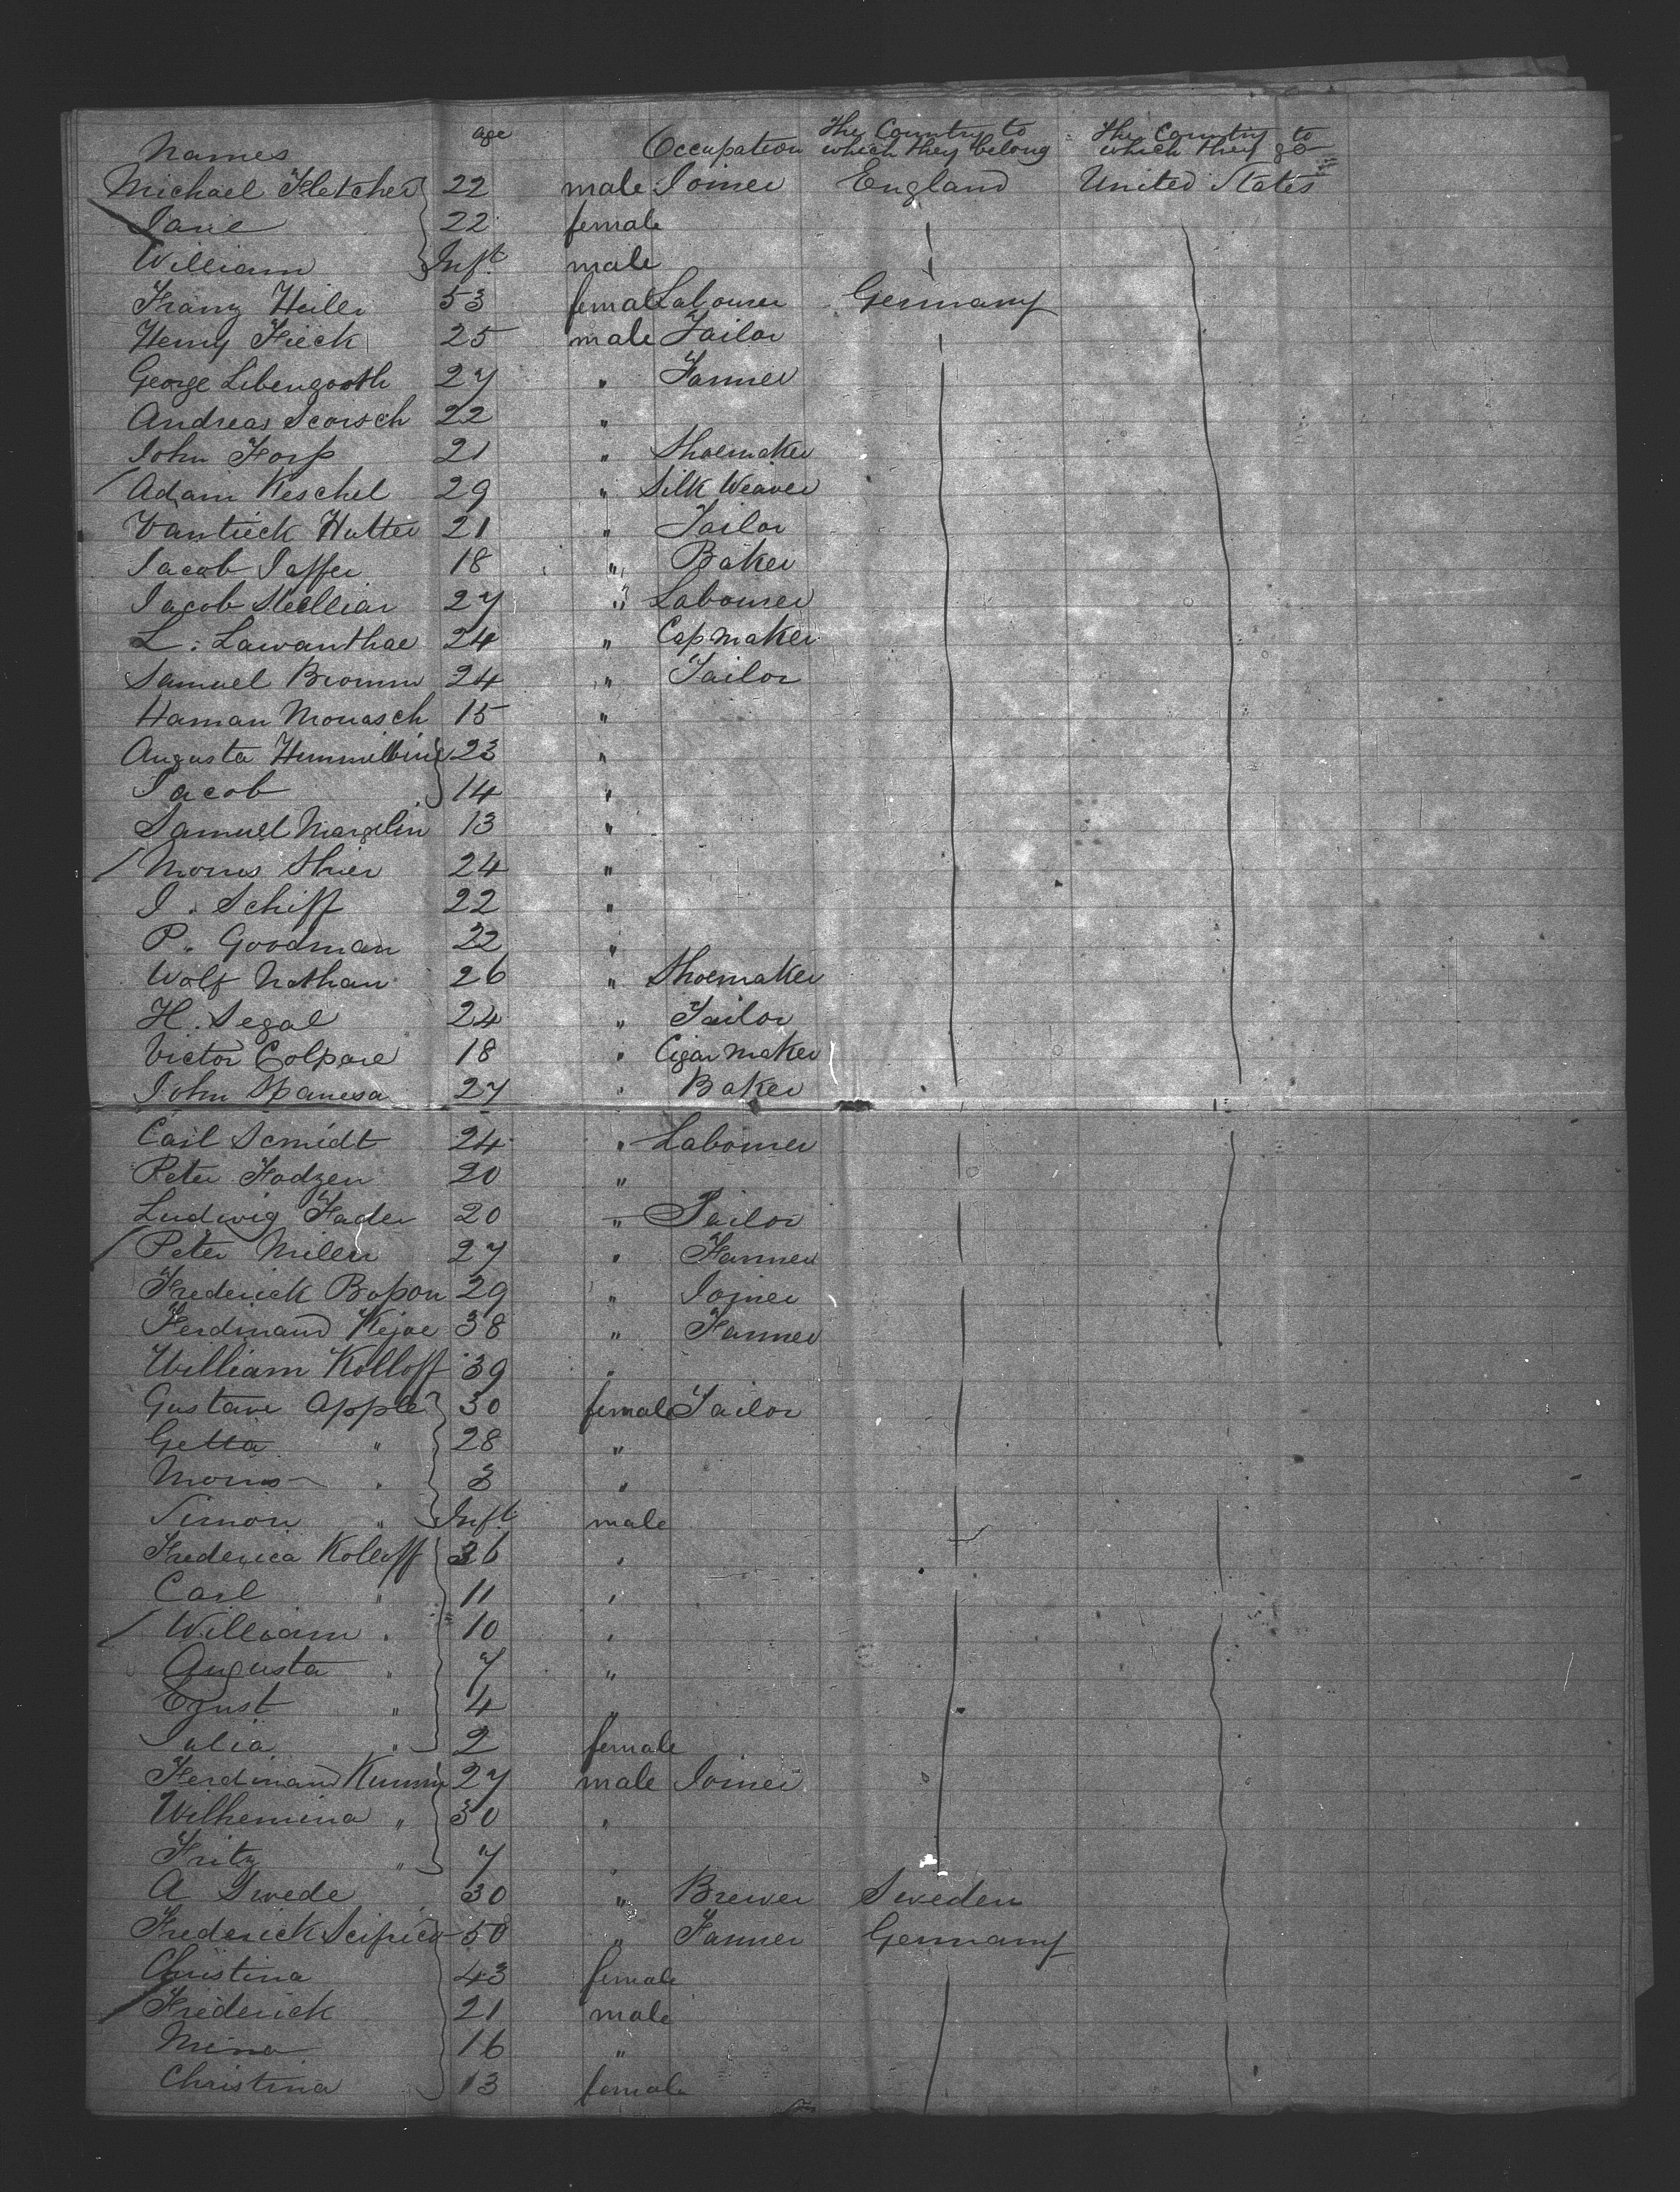 Names age Occupation The Country to which they belong The Country to which they go
Michael Fletcher 22 male Joiner England United States
Jane 22 female
William Inft male
Franz Heiler 53 female Labourer Germany
Henry Fieck 25 male Tailor
George Libengooth 27 " Farmer
Andreas 22 "
John 21 " Shoemaker
Adam Keschel 29 " Silk Weaver
Hutter 21 " Tailor
Jacob Jaffer 18 " Baker
Jacob 27 " Labourer
L. Lawanthae 24 " Cap maker
Samuel Bromm 24 " Tailor
Haman Monasch 15 "
Augusta 23 "
Jacob 14 "
Samuel Margelin 13 "
Morris Shier 24 "
I. Schiff 22 "
P. Goodman 22 "
Wolf Nathan 26 " Shoemaker
H. Segal 24 " Tailor
Victor Colpare 18 " Cigar maker
John Spanesa 27 " Baker
Carl Scmidt 24 " Labourer
Peter Fodzen 20 "
Ludwig Fader 20 " Tailor
Peter Miller 27 " Farmer
Frederick 29 " Joiner
Ferdinand Kejae 38 " Farmer
William Kolloff 39 "
Gustave Apple 30 female Tailor
Getta " 28 "
Morris " 3 "
Simon " Inft male
Frederica Kolloff 36 "
Carl " 11 "
William " 10 "
Augusta " 7 "
Ernst " 4 "
Julia " 2 female
Ferdinand Kumm 27 male Joiner
Wilhemina " 30 "
Fritz " 7 "
A Swede 30 " Brewer Sweden
Frederick 50 " Farmer Germany
Christina 43 female
Frederick 21 male
Mina 16 "
Christina 13 female